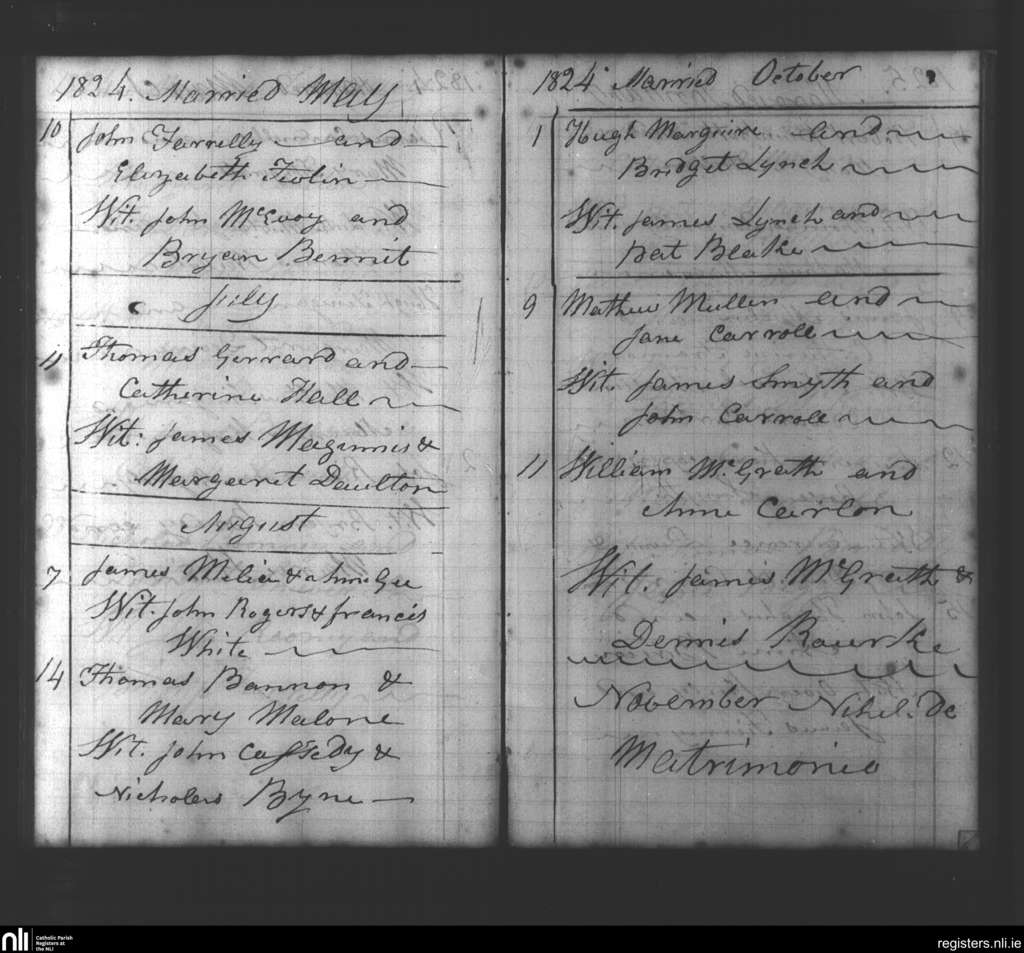 1824. Married May
10 John Farrelly and
Elizabeth
Wit. John McEvoy and
Bryan Bennit
July
11 Thomas Gerrard and
Catherine Hall
Wit: James Maginnis &
Margaret Daulton
August
7 James Melia & Anne Gee
Wit. John Rogers & Francis
White
14 Thomas Bannon &
Mary Malone
Wit. John Cassedy &
Nicholas Byrne
1824 Married October
1 Hugh Marguire and
Bridget Lynch
Wit. James Lynch and
Pat Blake
9 Mathew Mullen and
Jane Carroll
Wit. James Smyth and
John Carroll
11 William McGrath and
Anne Carlon
Wit. James McGrath &
Dennis Rourke
November Nihil. De
Matrimonio
nli
Catholic Parish
Registers at
the NLI
registers.nli.ie